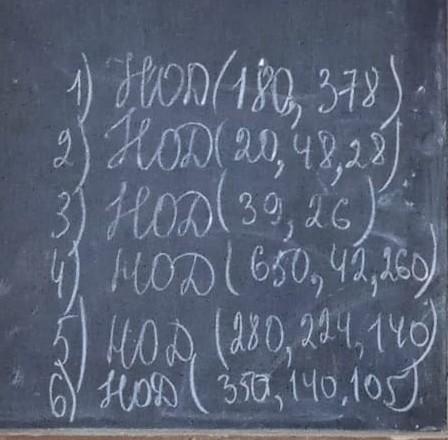 1) НОД(180, 378)
2) НОД(20, 48, 28)
3) НОД(39, 26)
4) НОД(650, 42, 260)
5) НОД(280, 224, 140)
6) НОД(350, 140, 105)